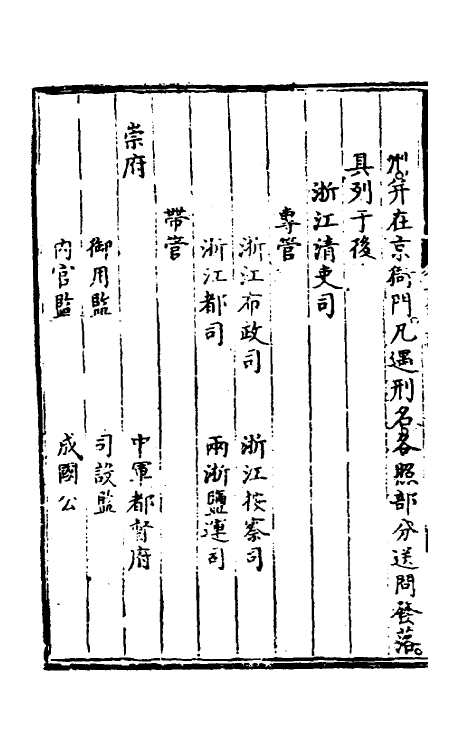 州并在京衙門凡遇刑名各照部分送問發落
具列于後
浙江清吏司
專管
浙江布政司 浙江按察司
浙江都司 兩浙鹽運司
帶管
崇府 中軍都督府
御用監 司設監
內官監 成國公